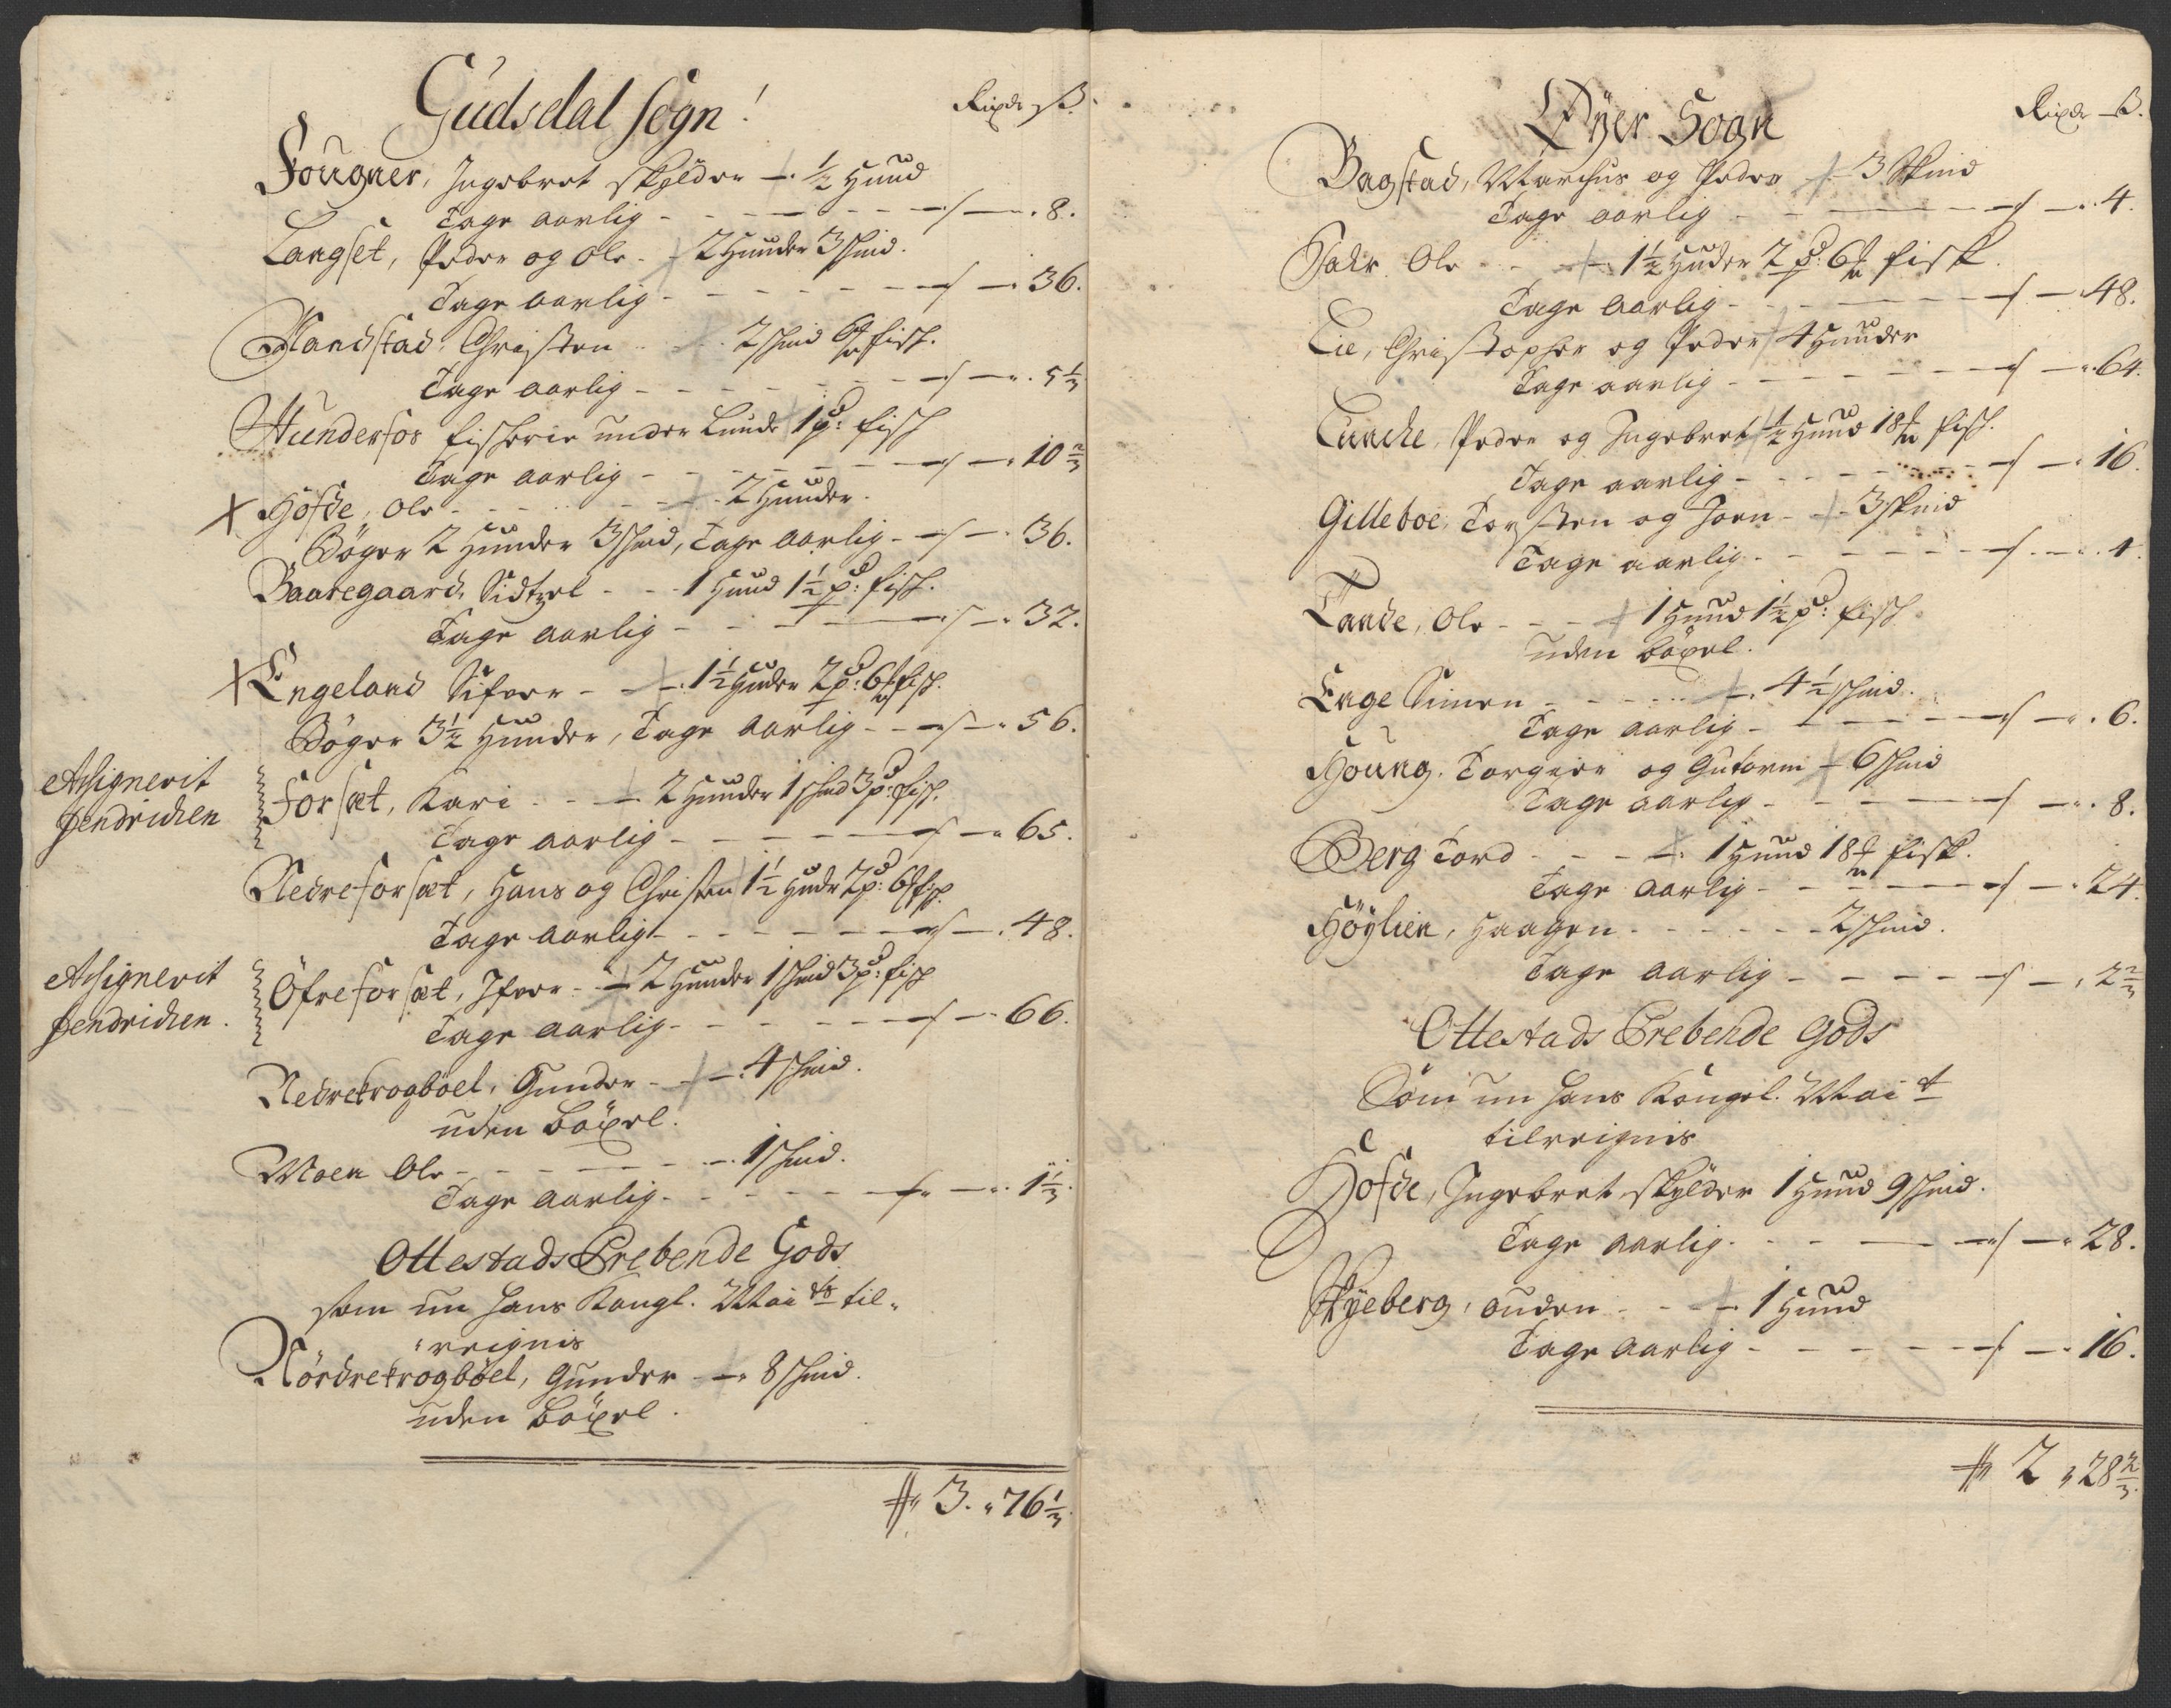 Gudsdal Sogn!
Rixdr ß.
Fougner, Ingebret skylder - ½ Huud
Tage aarlig - - - 8.
Langset, Peder og Ole - 2 Huuder 3 skind.
Tage aarlig - - - 36.
Randstad, Christen - - 2 skind 6 fisk.
Tage aarlig - - - 5⅓
Hunderfos fischerie under Lunde 1 pd: fisk
Tage aarlig - - - 10⅔
Hofde, Ole - - - 2 Huuder.
Böger 2 Huuder 3 skind, Tage aarlig - - 36.
Baategaard, Sidtzel - - 1 Huud 1½ pd: fisk.
Tage aarlig - - - 32.
Engeland Sifver - - 1½ Huder 2 pd: 6 fisk.
Böger 3½ Huuder, Tage aarlig - - 56.
Assignerit
fendrichen
Forsæt, Kari - - 2 Huuder 1 skind 3 pd: fisk.
Tage aarlig - - - 65.
Nedreforsæt, Hans og Christen 1½ Hude 2 pd: 6 fisk.
Tage aarlig - - - 48.
Assignerit
fendrichen.
Öfreforsæt, Ifver - - 2 Huuder 1 skind 3 pd: fisk
Tage aarlig - - - 66.
Nedrekrogböel, Gunder - - 4 skind.
uden böxel.
Moen Ole - - - 1 skind.
Tage aarlig - - - 1⅓.
Ottestads Prebende Gods
som nu hans Kongl. Maits til-
eignis
Nordrekrogböel, Gunder - 8 skind.
uden böxel.
3. 76⅓
Öyer Sogn
Rixdr ß.
Bagstad, Marchus og Peder - 3 Skind
Tage aarlig - - - 4.
Ole - - 1½ Huder 2 pd: 6 fisk.
Tage aarlig - - - 48.
Lie, Christopher og Peder 4 Huuder
Tage aarlig - - - 64.
Lunche, Peder og Ingebret ½ Huud 18 fisk.
Tage aarlig - - - 16.
Gilleboe, Torsten og Joen - - 3 skind
Tage aarlig - - - 4.
Tande, Ole - - - 1 Huud 1½ pd: fisk
uden böxel.
Enge Simen - - - 4½ skind.
Tage aarlig - - - 6.
Houng, Torgeir og Gutorm - 6 skind
Tage aarlig - - - 8.
Berg Tord - - - 1 Huud 18 fisk.
Tage aarlig - - - 24.
Höylien, Haagen - - - 2 skind.
Tage aarlig - - - 2⅔
Ottestads Prebende Gods
Som nu hans Kongel. Mait
tilreignis
Hofde, Ingebret skylder 1 Huud 9 skind.
Tage aarlig - - - 28.
Skyeberg, Ouden - - - 1 Huud
Tage aarlig - - - 16.
2 28⅔